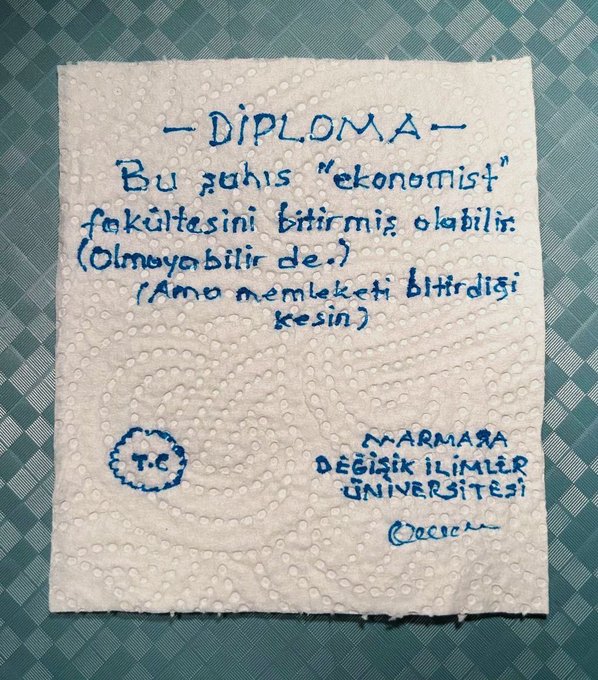 - DİPLOMA -
Bu şahıs "ekonomist"
fakültesini bitirmiş olabilir.
(Olmayabilir de.)
(Ama memleketi bitirdiği
kesin)
T.C
MARMARA
DEĞİŞİK İLİMLER
ÜNİVERSİTESİ